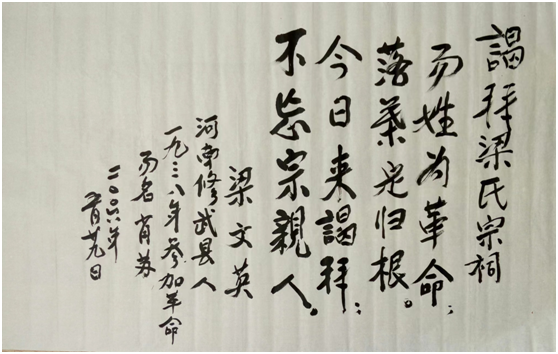 謁拜梁氏宗祠
易姓为革命；
落葉归根。
今日来謁拜；
不忘宗親人。
梁文英
河南修武县人
一九三八年参加革命
易名肖苏
二00六年
月廿九日